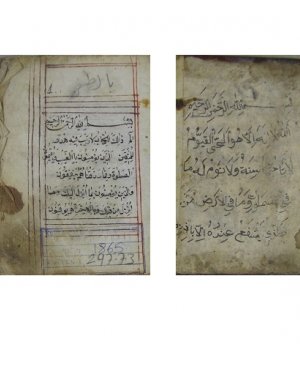 بسم الله الرحمن الرحيم
الم ذلك الكتاب لا ريب فيه هدى
للمتقين الذين يؤمنون بالغيب ويقيمون
الصلوة ومما رزقناهم ينفقون
والذين يؤمنون بما انزل اليك وما
انزل من قبلك وبالاخرة هم يوقنون
1865
297.73
بسم الله الرحمن الرحيم
الله لا اله الا هو الحي القيوم
لا تاخذه سنة ولا نوم له ما
في السموات وما في الارض من
ذا الذي يشفع عنده الا باذنه